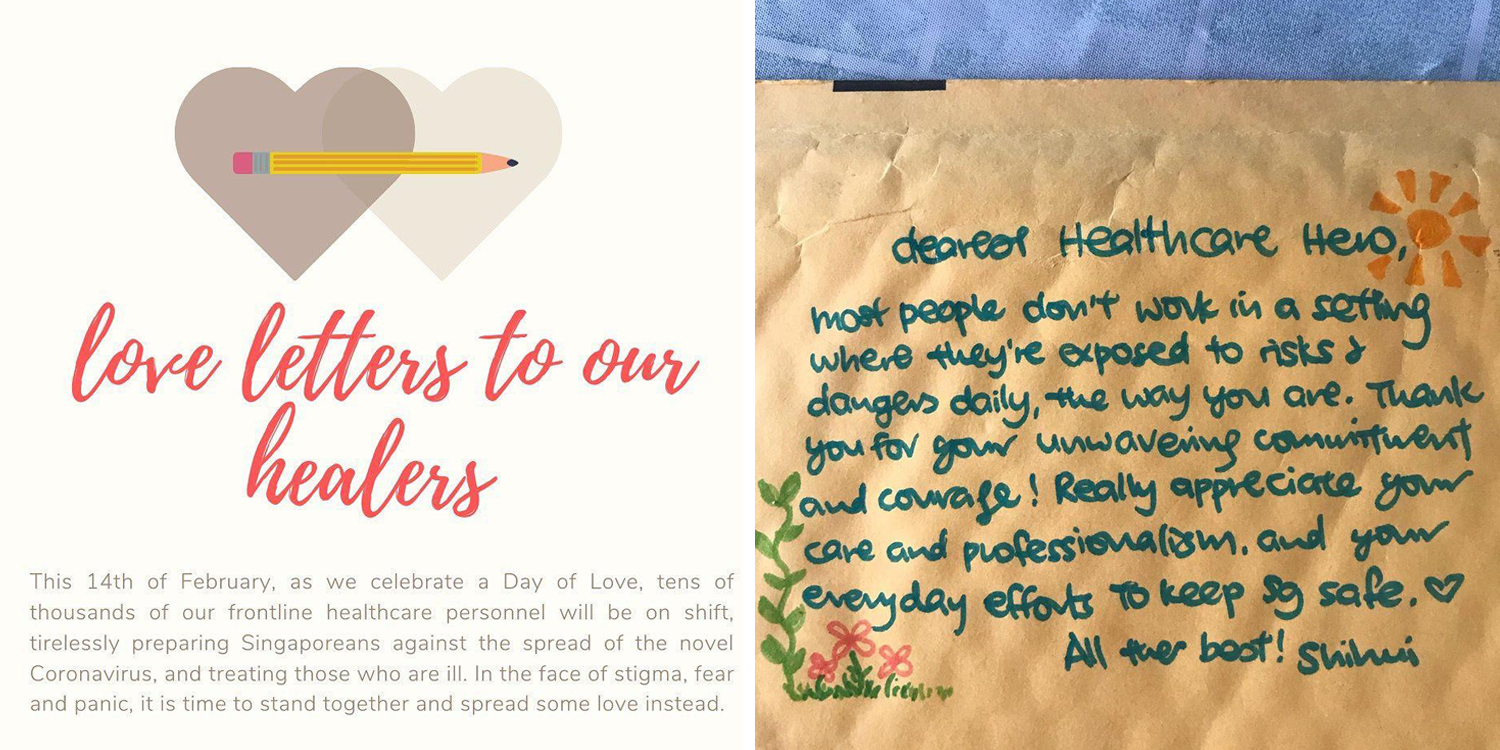 love letters to our
healers
This 14th of February, as we celebrate a Day of Love, tens of
thousands of our frontline healthcare personnel will be on shift,
tirelessly preparing Singaporeans against the spread of the novel
Coronavirus, and treating those who are ill. In the face of stigma, fear
and panic, it is time to stand together and spread some love instead.
dearest Healthcare Hero,
most people don't work in a setting
where they're exposed to risks &
dangers daily, the way you are. Thank
you for your unwavering commitment
and courage! Really appreciate your
care and professionalism, and your
everyday efforts to keep sg safe. ♡
All the best! Shihui